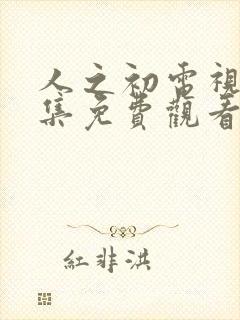 人之初電視
集免費觀看
紅非洪